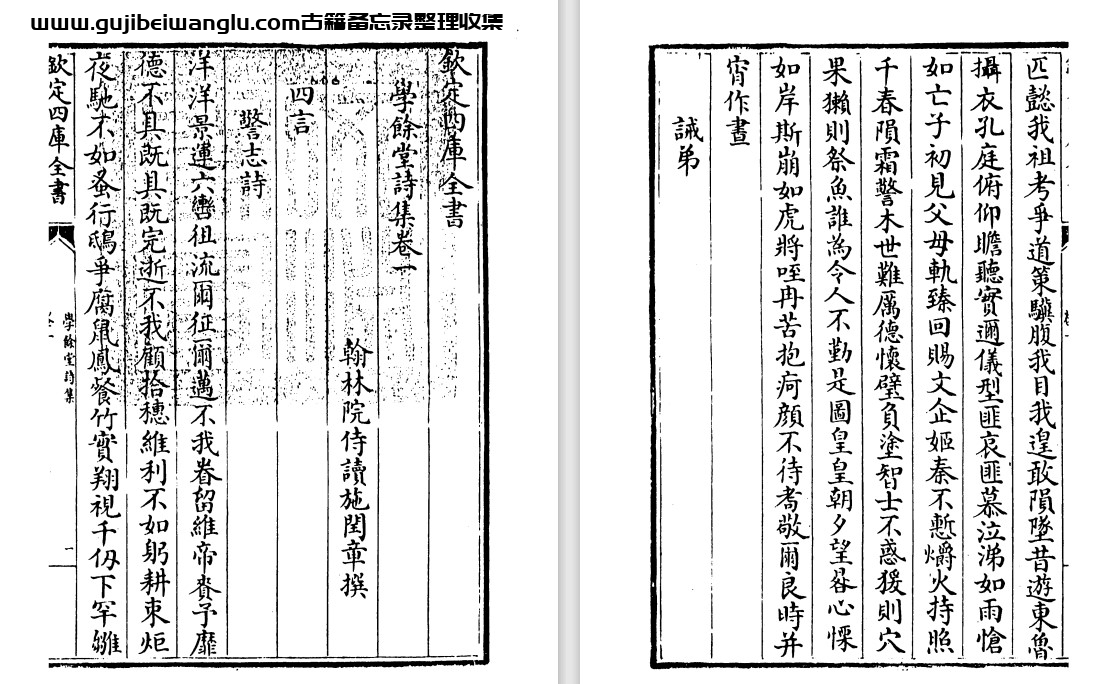 www.gujibeiwanglu.com古籍备忘录整理收集
欽定四庫全書
學餘堂詩集卷一
翰林院侍讀施閏章撰
四言
警志詩
洋洋景運六轡徂流爾征爾邁不我眷留維帝賚予靡
德不具既具既完逝不我顧拾穗維利不如躬耕束炬
夜馳不如蚤行鴟爭腐鼠鳳餐竹實翔視千仭下罕雛
欽定四庫全書
學餘堂詩集
一
匹懿我祖考爭道策驥腹我目我遑敢隕墜昔遊東魯
攝衣孔庭俯仰瞻聽實邇儀型匪哀匪慕泣涕如雨愴
如亡子初見父母軌臻回賜文企姬秦不慙爝火持照
千春隕霜警木世難厲德懷璧負塗智士不惑猨則穴
果獺則祭魚誰為令人不勤是圖皇皇朝夕望晷心慄
如岸斯崩如虎將咥冉苦抱疴顔不待耉敬爾良時并
宵作晝
誡弟